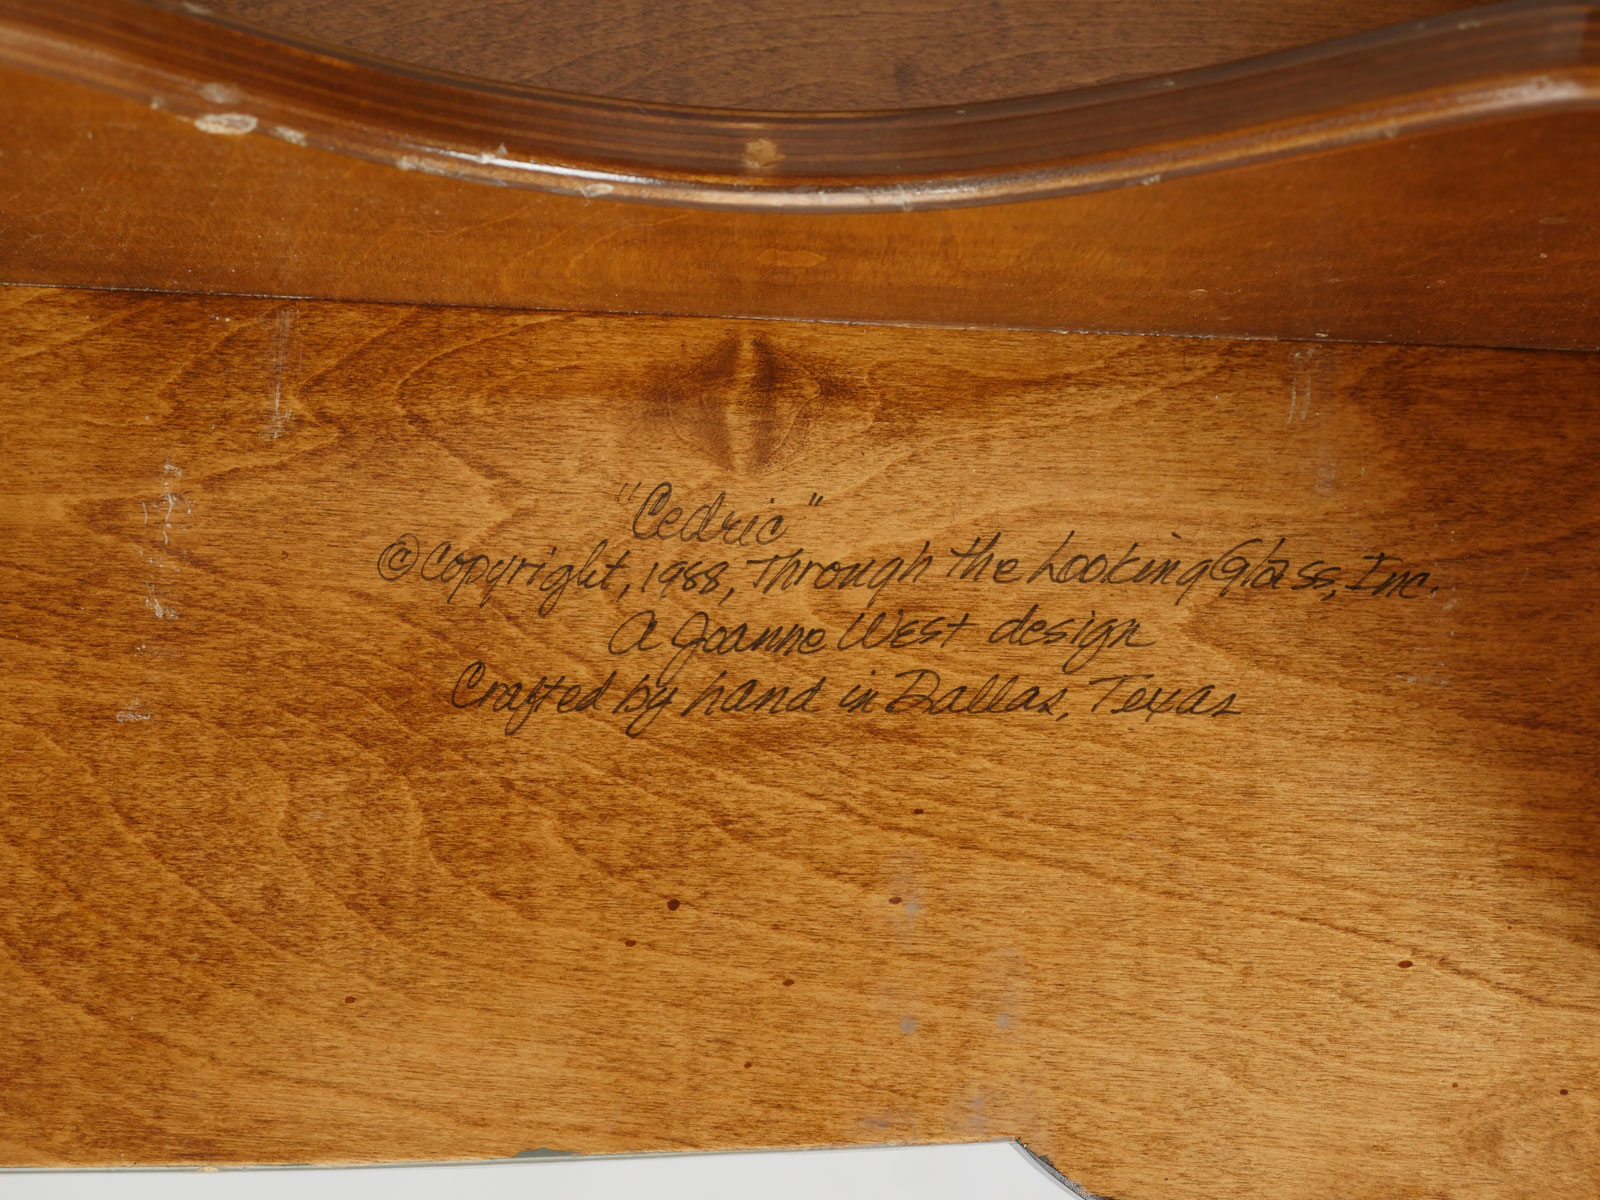 "Cedric"
© Copyright, 1988, Through the Looking Glass, Inc.
A Joanne West design
Crafted by hand in Dallas, Texas